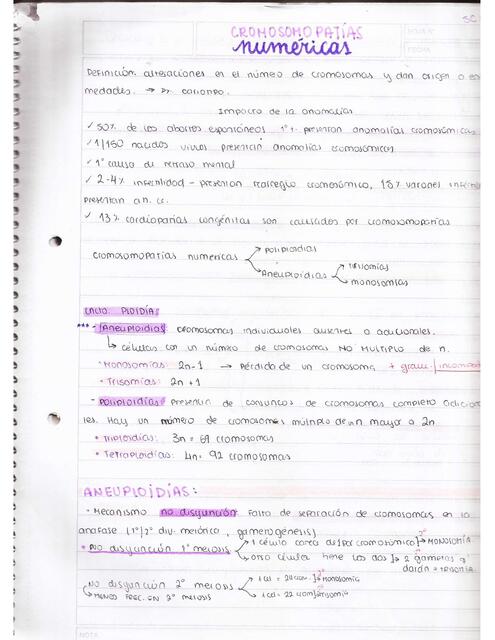 SC
CROMOSOMOPATÍAS
numéricas
FECHA
Definición: alteraciones en el número de cromosomas y dan origen a en
medades. → Dx: cariotipo.
Impacto de la anomalías
✓ 50% de los abortos espontáneos 1° t. presentan anomalías cromosómicas
✓ 1/160 nacidos vivos presentan anomalías cromosómicas
✓ 1° causa de retraso mental
✓ 2-4% infertilidad - presentan rearreglo cromosómico, 15% varones infertil
presentan an. cr.
✓ 13% cardiopatías congénitas son causadas por cromosomopatías
cromosomopatías numéricas
poliploidías
Aneuploidías
trisomías
monosomías
PLOIDÍA:
*** - Aneuploidías cromosomas individuales ausentes o adicionales.
↳ células con un número de cromosomas NO MULTIPLO de n.
• Monosomías: 2n-1 → pérdida de un cromosoma + grave / incompat
• Trisomías: 2n+1
- Poliploidías presentan de conjuntos de cromosomas completo adicion
les. Hay un número de cromosomas múltiplo de un mayor a 2n
• Triploidías: 3n = 69 cromosomas
• Tetraploidías: 4n = 92 cromosomas
ANEUPLOIDÍAS:
• Mecanismo no disyunción: falta de separación de cromosomas en la
anafase (1°/2° div. meiótica, gametogénesis)
• No disyunción 1° meiosis
1 célula carece de (par cromosómico) → MONOSOMÍA
otra célula tiene los dos → 2 gametos
darán = TRISOMÍA
No disyunción 2° meiosis
→ MENOS FREC. EN 2° MEIOSIS
→ Monosomía
1 cel = 22 crom → trisomía
NOTA